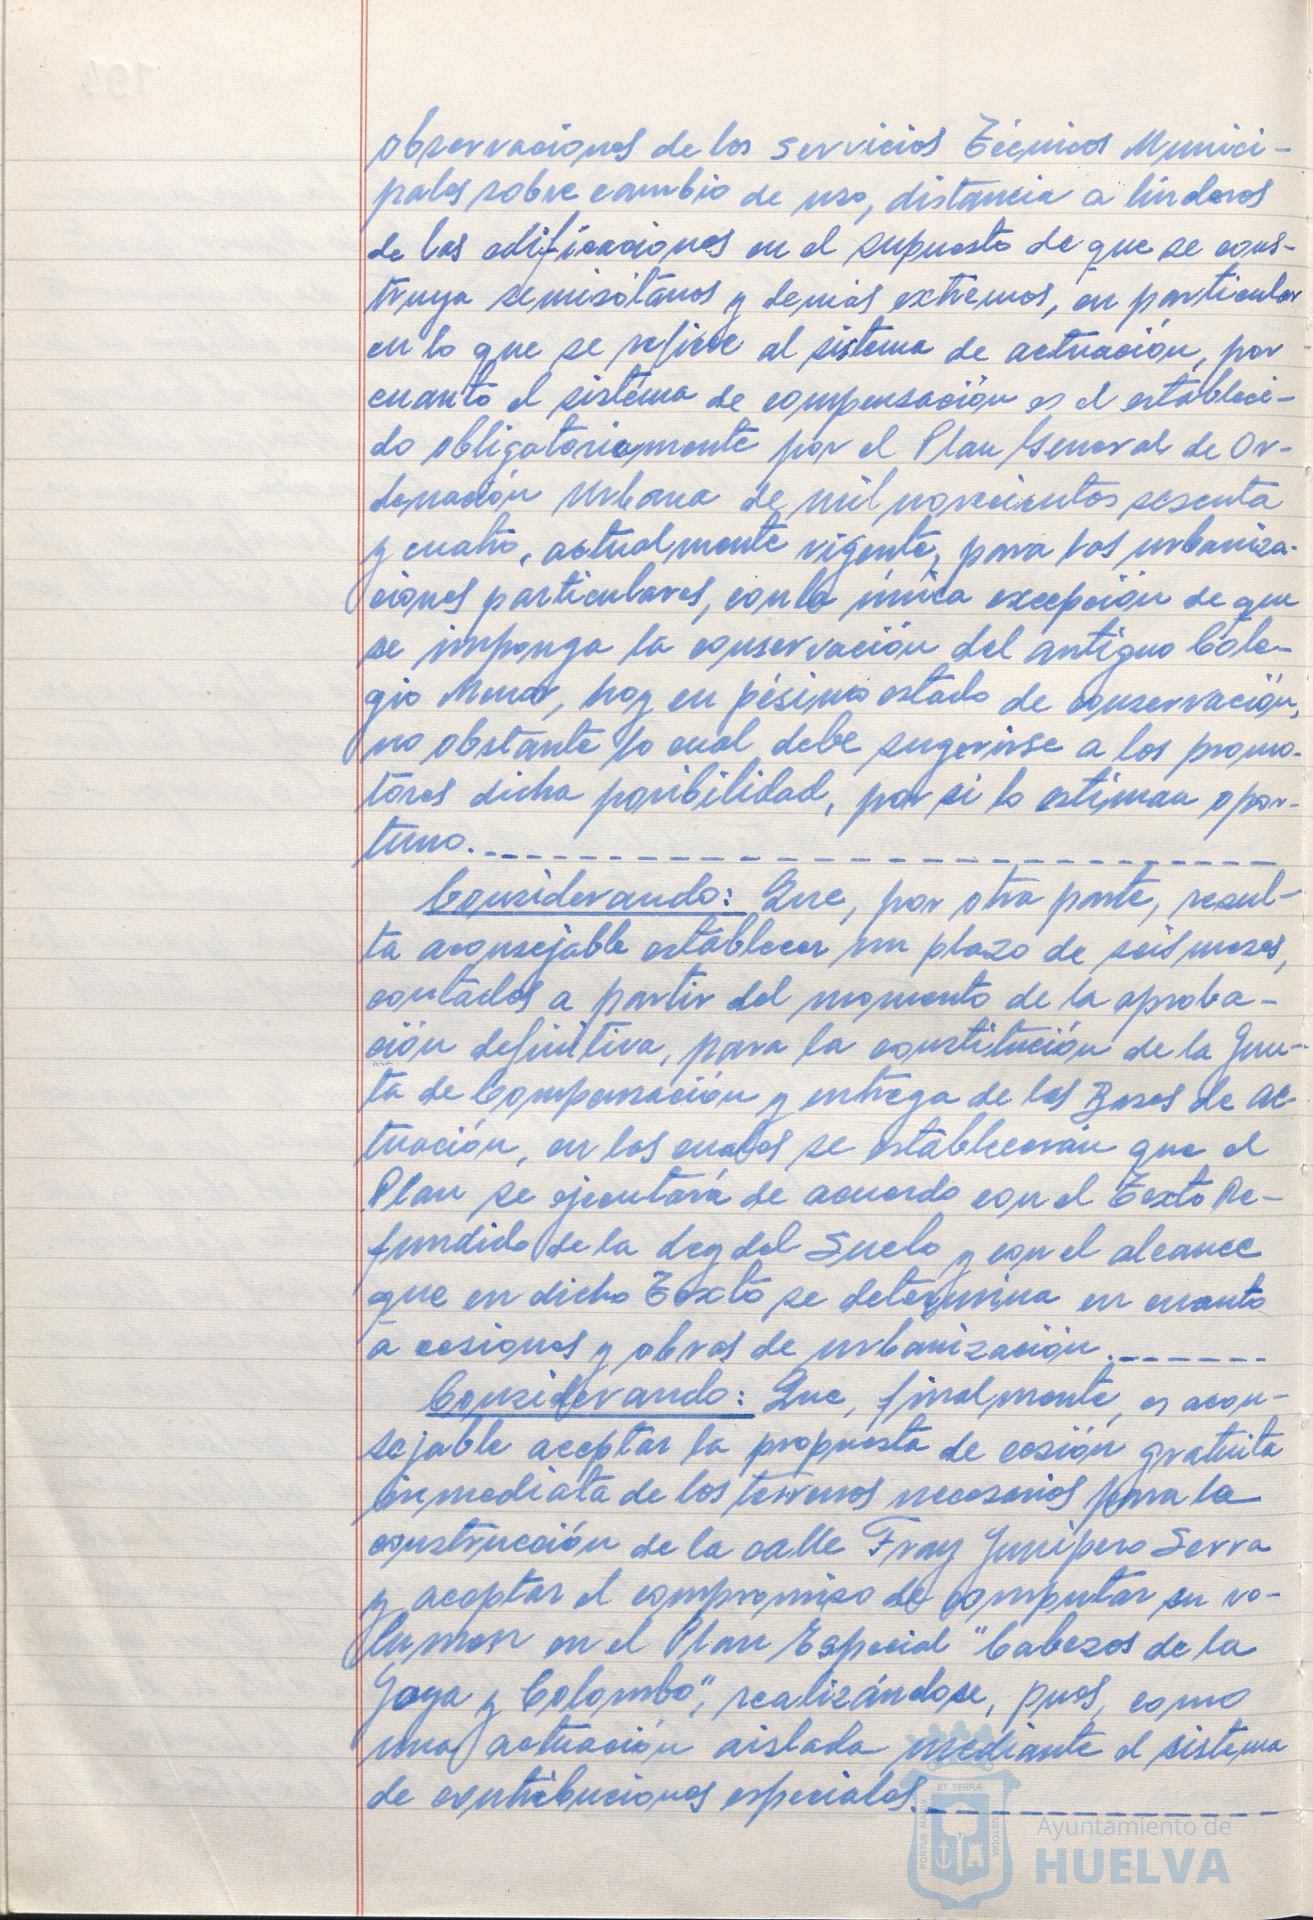 observaciones de los Servicios Técnicos Munici-
pales sobre cambio de uso, distancia a linderos
de las edificaciones en el supuesto de que se cons-
truya semisótanos y demás extremos, en particular
en lo que se refiere al sistema de actuación, por
cuanto el sistema de compensación es el estableci-
do obligatoriamente por el Plan General de Or-
denación Urbana de mil novecientos sesenta
y cuatro, actualmente vigente, para las urbaniza-
ciones particulares, con la única excepción de que
se imponga la conservación del antiguo Cole-
gio Menor, hoy en pésimo estado de conservación,
no obstante lo cual, debe sugerirse a los promo-
tores dicha posibilidad, por si lo estiman opor-
tuno.
Considerando: Que, por otra parte, resul-
ta aconsejable establecer un plazo de seis meses,
contados a partir del momento de la aproba-
ción definitiva, para la constitución de la Jun-
ta de Compensación y entrega de las Bases de Ac-
tuación, en las cuales se establecerán que el
Plan se ejecutará de acuerdo con el Texto Re-
fundido de la Ley del Suelo y con el alcance
que en dicho Texto se determina en cuanto
a cesiones y obras de urbanización.
Considerando: Que, finalmente, es acon-
sejable aceptar la propuesta de cesión gratuita
inmediata de los terrenos necesarios para la
construcción de la calle Fray Junípero Serra
y aceptar el compromiso de computar su vo-
lumen en el Plan Especial "Cabezos de la
Joya y Colombo", realizándose, pues, como
una actuación aislada mediante el sistema
de contribuciones especiales.
Ayuntamiento de
HUELVA